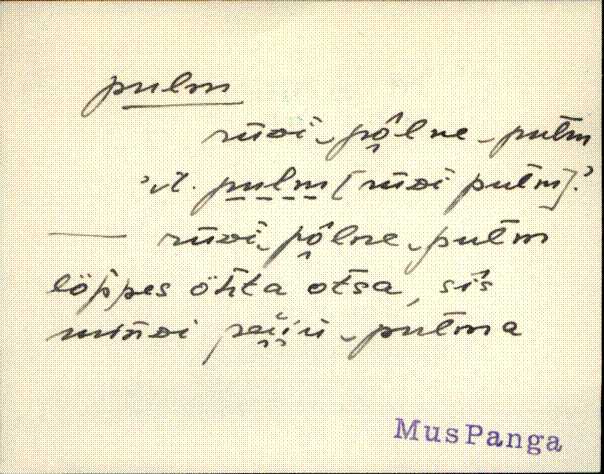 pulm
rüəi‿pô̭lne‿pul̄m
'vt. pulm [rüəi pul̄m].'
— rüəi‿pô̭lne‿pul̄m
löp̀pes öh̄ta ot̄sa, sìs
min̄di ‿pul̄ma
MusPanga